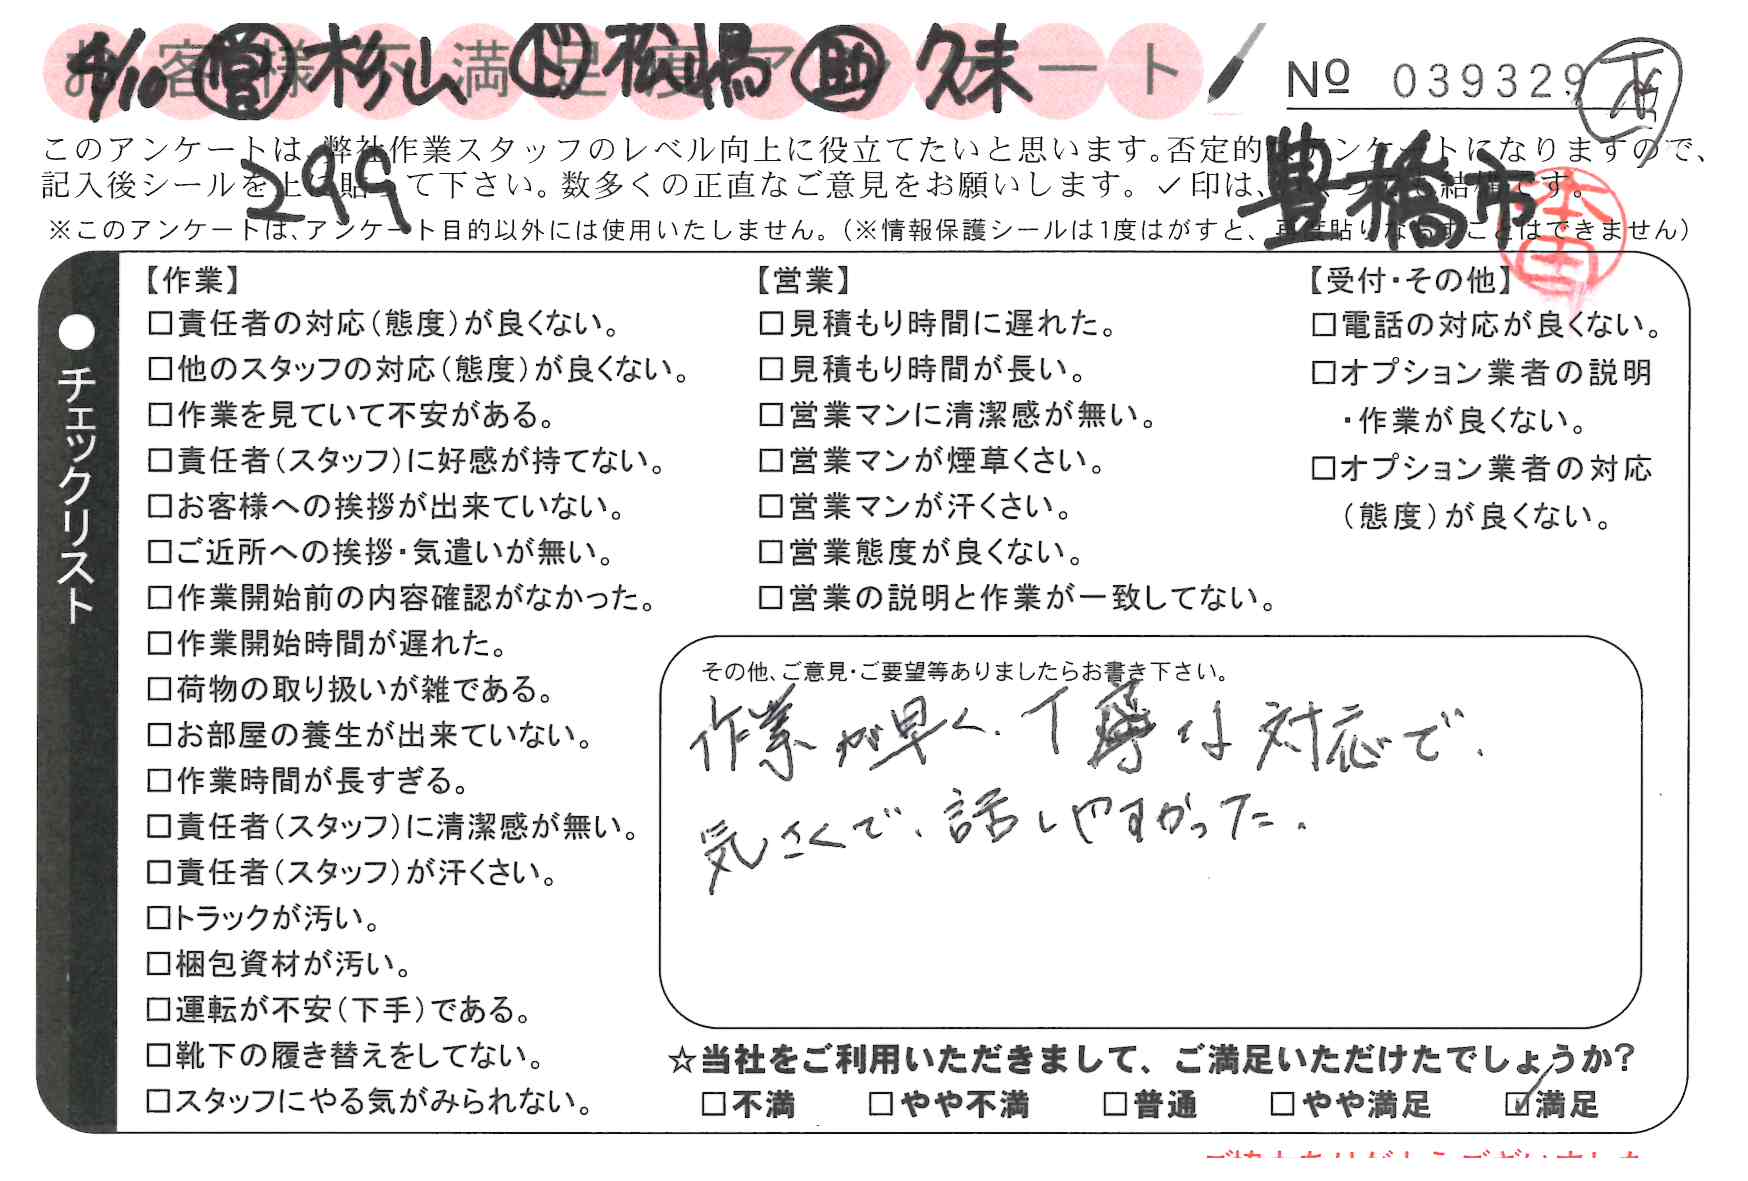 お客様不満足度アンケート
4/10 営 杉山 ド 松嶋 助 久末
No 039329
このアンケートは、弊社作業スタッフのレベル向上に役立てたいと思います。否定的なアンケートになりますので、
299 豊橋市
記入後シールを上に貼って下さい。数多くの正直なご意見をお願いします。✓印は、 結構です。
※このアンケートは、アンケート目的以外には使用いたしません。(※情報保護シールは1度はがすと、再度貼りなおすことはできません)
●チェックリスト
【作業】
□責任者の対応(態度)が良くない。
□他のスタッフの対応(態度)が良くない。
□作業を見ていて不安がある。
□責任者(スタッフ)に好感が持てない。
□お客様への挨拶が出来ていない。
□ご近所への挨拶・気遣いが無い。
□作業開始前の内容確認がなかった。
□作業開始時間が遅れた。
□荷物の取り扱いが雑である。
□お部屋の養生が出来ていない。
□作業時間が長すぎる。
□責任者(スタッフ)に清潔感が無い。
□責任者(スタッフ)が汗くさい。
□トラックが汚い。
□梱包資材が汚い。
□運転が不安(下手)である。
□靴下の履き替えをしてない。
□スタッフにやる気がみられない。
【営業】
□見積もり時間に遅れた。
□見積もり時間が長い。
□営業マンに清潔感が無い。
□営業マンが煙草くさい。
□営業マンが汗くさい。
□営業態度が良くない。
□営業の説明と作業が一致してない。
【受付・その他】
□電話の対応が良くない。
□オプション業者の説明
・作業が良くない。
□オプション業者の対応
(態度)が良くない。
その他、ご意見・ご要望等ありましたらお書き下さい。
作業が早く、丁寧な対応で、
気さくで、話しやすかった。
☆当社をご利用いただきまして、ご満足いただけたでしょうか?
□不満 □やや不満 □普通 □やや満足 ☑満足
ご協力ありがとうございました